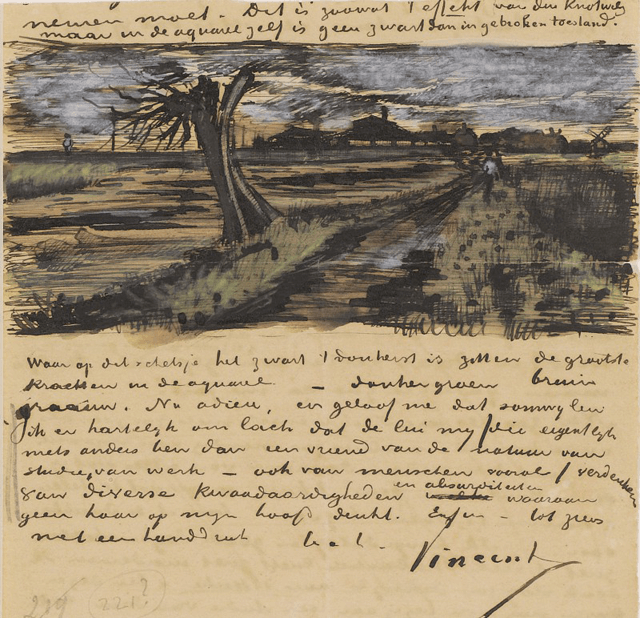 nemen moet. Dit is zoowat 't effekt van den Knotwilg
maar in de aquarel zelf is geen zwart dan in gebroken toestand.
Waar op dit schetsje het zwart 't donkerst is zitten de grootste
krachten in de aquarel – donkergroen bruin
graauw. Nu adieu, en geloof me dat somwijlen
ik er hartelijk om lach dat de lui mij /die eigentlijk
niets anders ben dan een vriend van de natuur van
studie, van werk – ook van menschen vooral / verdenken
van diverse kwaadaardigheden en absurditeiten waaraan
geen haar op mijn hoofd denkt. Enfin – tot ziens
met een handdruk
Vincent
221?